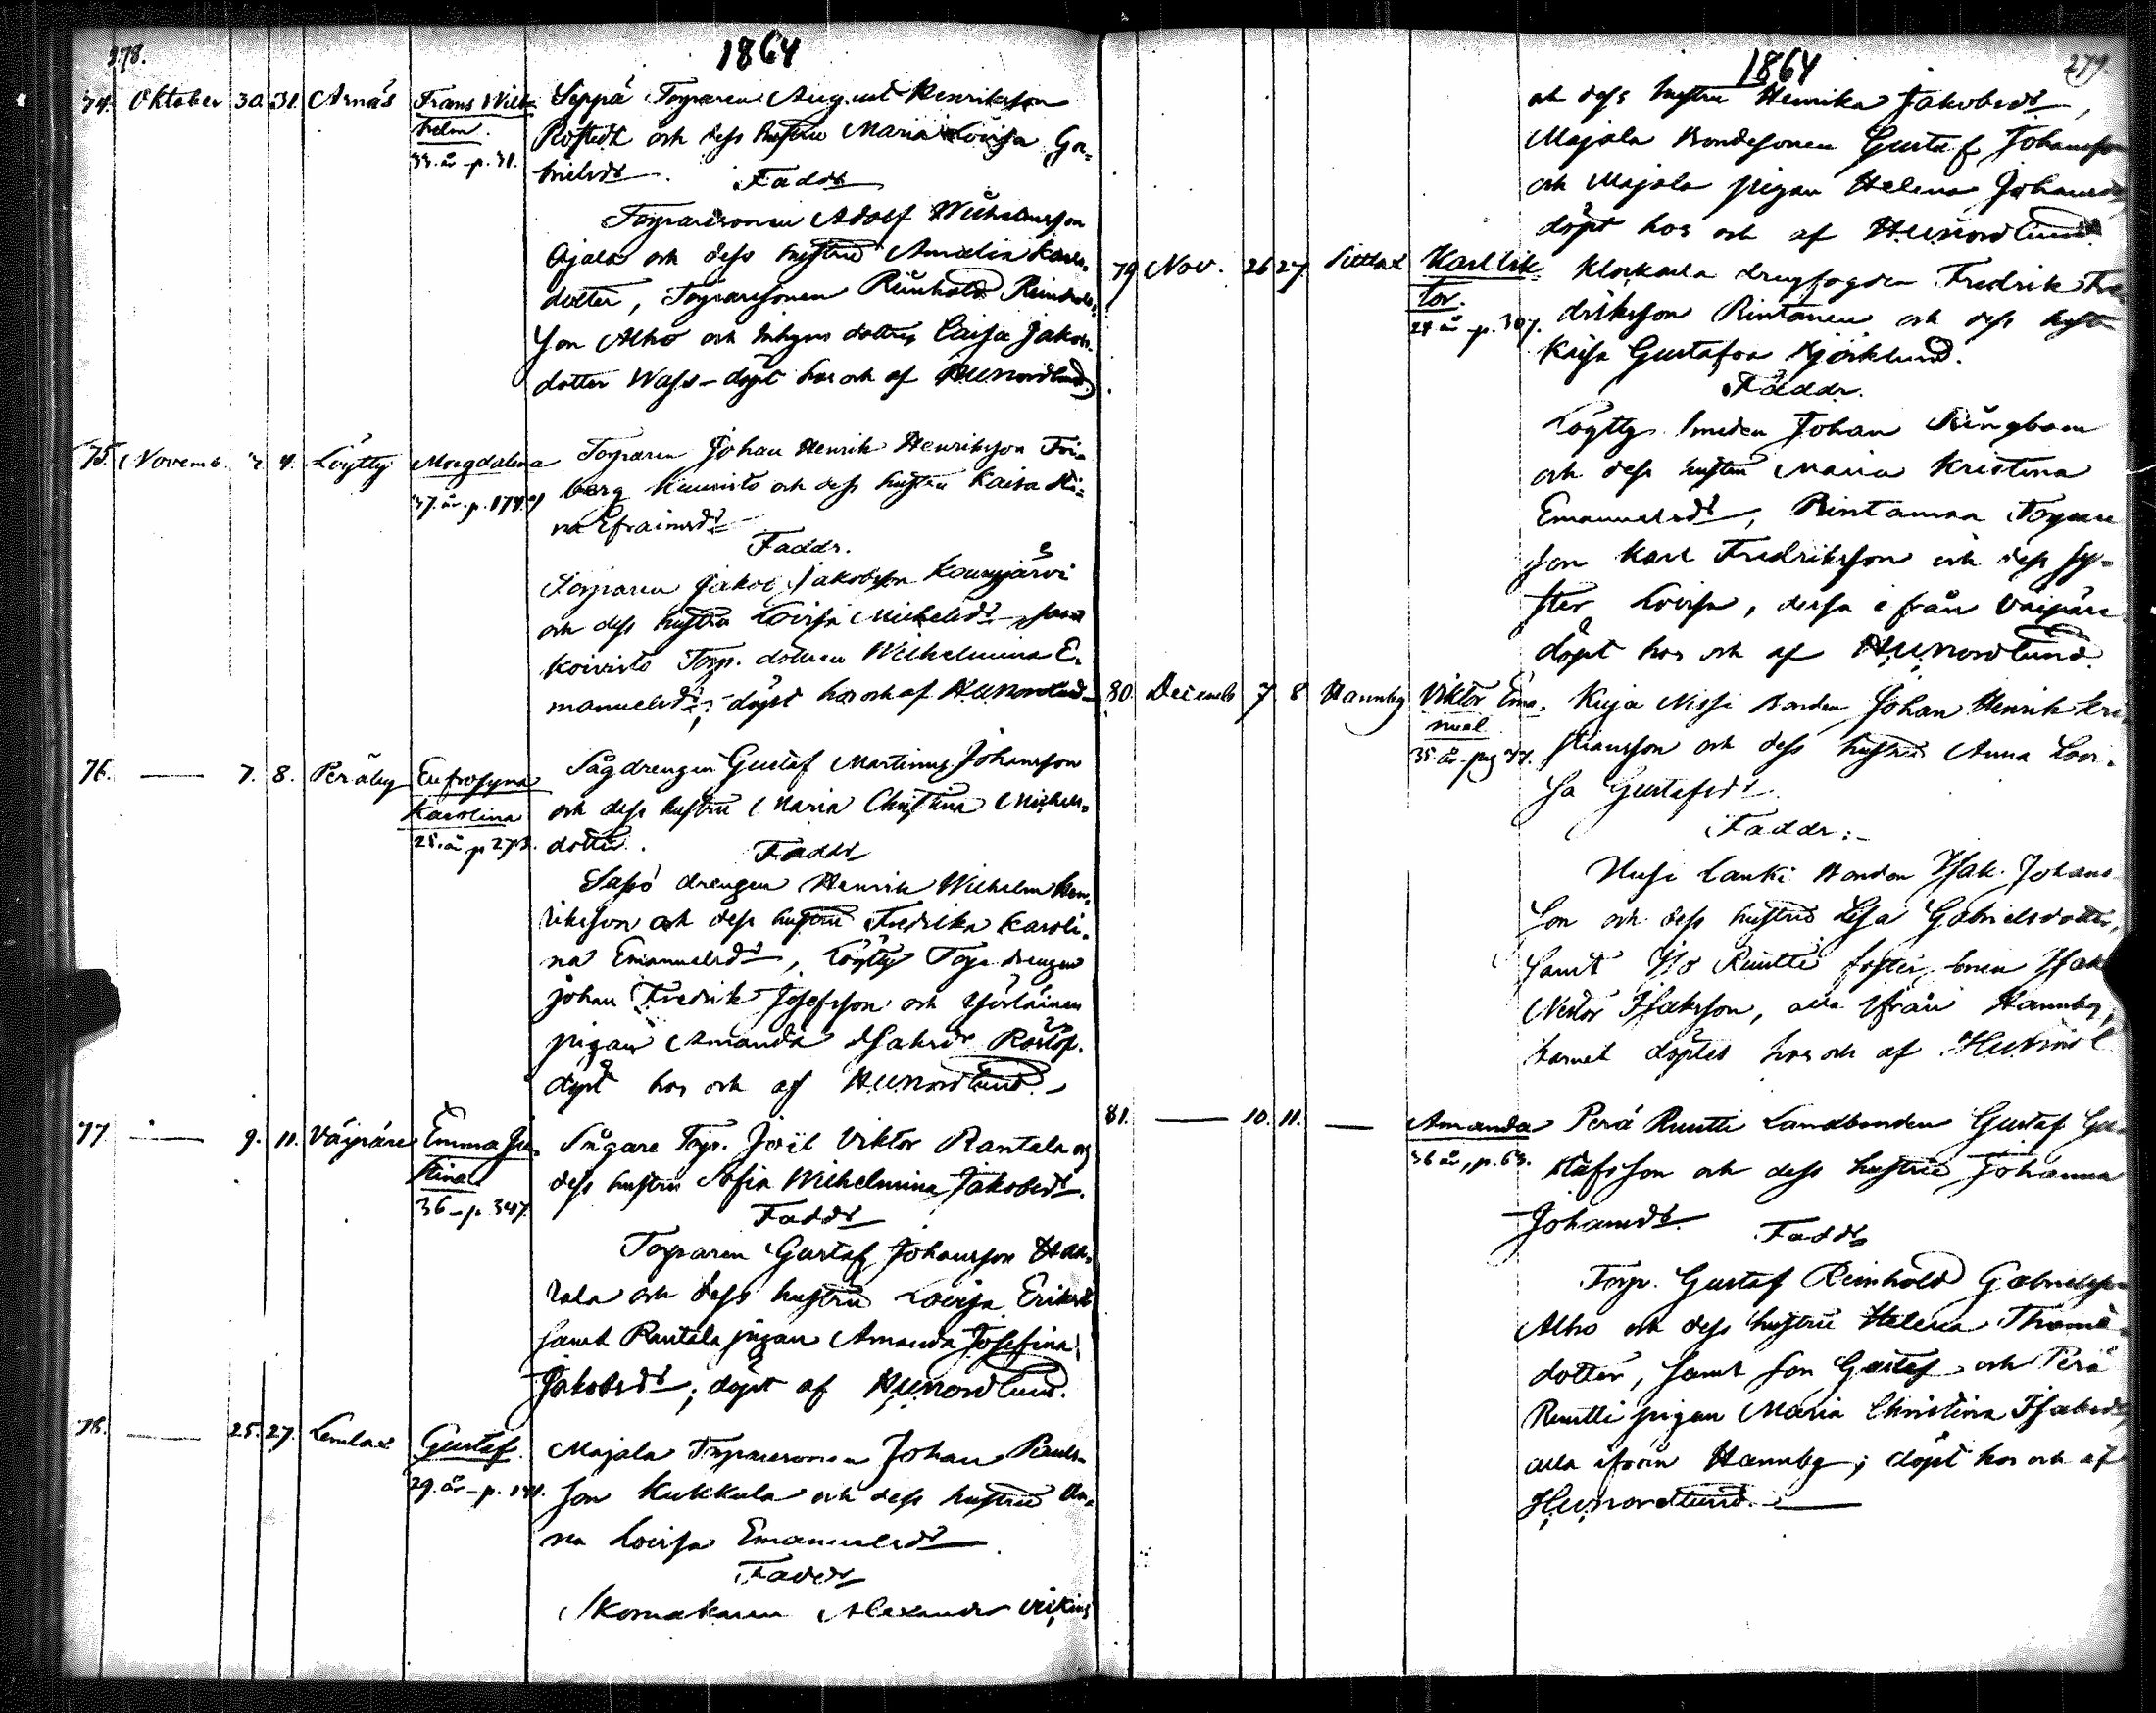 278.
1864
74. Oktober 30. 31. Arnäs Frans Wilhelm. 33. år - p. 31.
Seppä Torparen August Henriksson
och dess hustru Maria Lovisa Ga-
brielsdr.
Faddr
Torparesonen Adolf Wilhelmsson
Ajala och dess hustru Amalia Karls-
dotter, Torparesonen Reinhold Reinholds-
son Alho och Inhyses dottren Caisa Jakobs-
dotter Wass - döpt hos och af HUNordlund
75. Novemb. 4. Löytty Magdalena 37. år. p. 174.
Torparen Johan Henrik Henriksson
berg Kuusisto och dess hustru Kaisa Sti-
na Efraimsdr
Faddr.
Torparen Jakob Jakobsson Kouvijärvi
och dess hustru Lovisa Michelsdr samt
Koivisto Torp. dottren Wilhelmina E-
manuelsdr; döpt hos och af HUNordlund
76. — 7. 8. Peräby Eufrosyna Karolina 25. år p 273.
Sågdrengen Gustaf Martinus Johansson
och dess hustru Maria Christina Michels-
dotter.
Faddr
Drengen Henrik Wilhelm Hen-
riksson och dess hustru Fredrika Karoli-
na Emanuelsdr, Löytty Torp drengen
Johan Fredrik Josefsson och
pigan Amanda Isaksdr
döpt hos och af HUNordlund.
77. — 9. 11. Väipäre Emma Justina 36 - p. 347.
Sågare Torp. Joël Viktor Rantala och
dess hustru Sofia Wilhelmina Jakobsdr.
Faddr
Torparen Gustaf Johansson Haa-
tala och dess hustru Lovisa Eriksdr
samt Rantala pigan Amanda Josefina
Jakobsdr; döpt af HUNordlund.
78. — 25. 27. Lemlax Gustaf. 29. år - p. 141.
Majala Torparesonen Johan Pauls-
son Kukkula och dess hustru An-
na Lovisa Emanuelsdr
Faddr
Skomakaren Alexander Viking
1864
279
och dess hustru Henrika Jakobsdr,
Majala Bondesonen Gustaf Johansson
och Majala pigan Helena Johansdr,
döpt hos och af HUNordlund.
79 Nov. 26 27. Karl Viktor. 24 år - p. 307.
Klockarla drengfogden Fredrik Fre-
driksson Rintanen och dess hustru
Kaisa Gustafva Björklund.
Faddr.
Löytty smeden Johan Ringbom
och dess hustru Maria Kristina
Emanuelsdr, Rintamaa Torpare
son Karl Fredriksson och dess sy-
ster Lovisa, dessa ifrån Väipäre
döpt hos och af HUNordlund.
80. Decemb 7. 8. Hannby Viktor Emanuel 35. år - pag 77.
Kuja Nissi bonden Johan Henrik Kri-
stiansson och dess hustru Anna Lovi-
sa Gustafsdr.
Faddr:-
Husi Lanki bonden Isak Johans-
son och dess hustru Lisa Gabrielsdotter,
samt Iso Ruutti foster sonen Isak
Nestor Isaksson, alla ifrån Hannby,
barnet döptes hos och af HUNordl
81. — 10. 11. — Amanda 36 år, p. 63.
Perä Ruutti Landbonden Gustaf Gu-
stafsson och dess hustru Johanna
Johansdr.
Faddr
Torp. Gustaf Reinhold Gabrielsson
Alho och dess hustru Helena Thomæ-
dotter, samt son Gustaf och Perä
Ruutti pigan Maria Christina Isaksdr,
alla ifrån Hannby; döpt hos och af
HUNordlund.